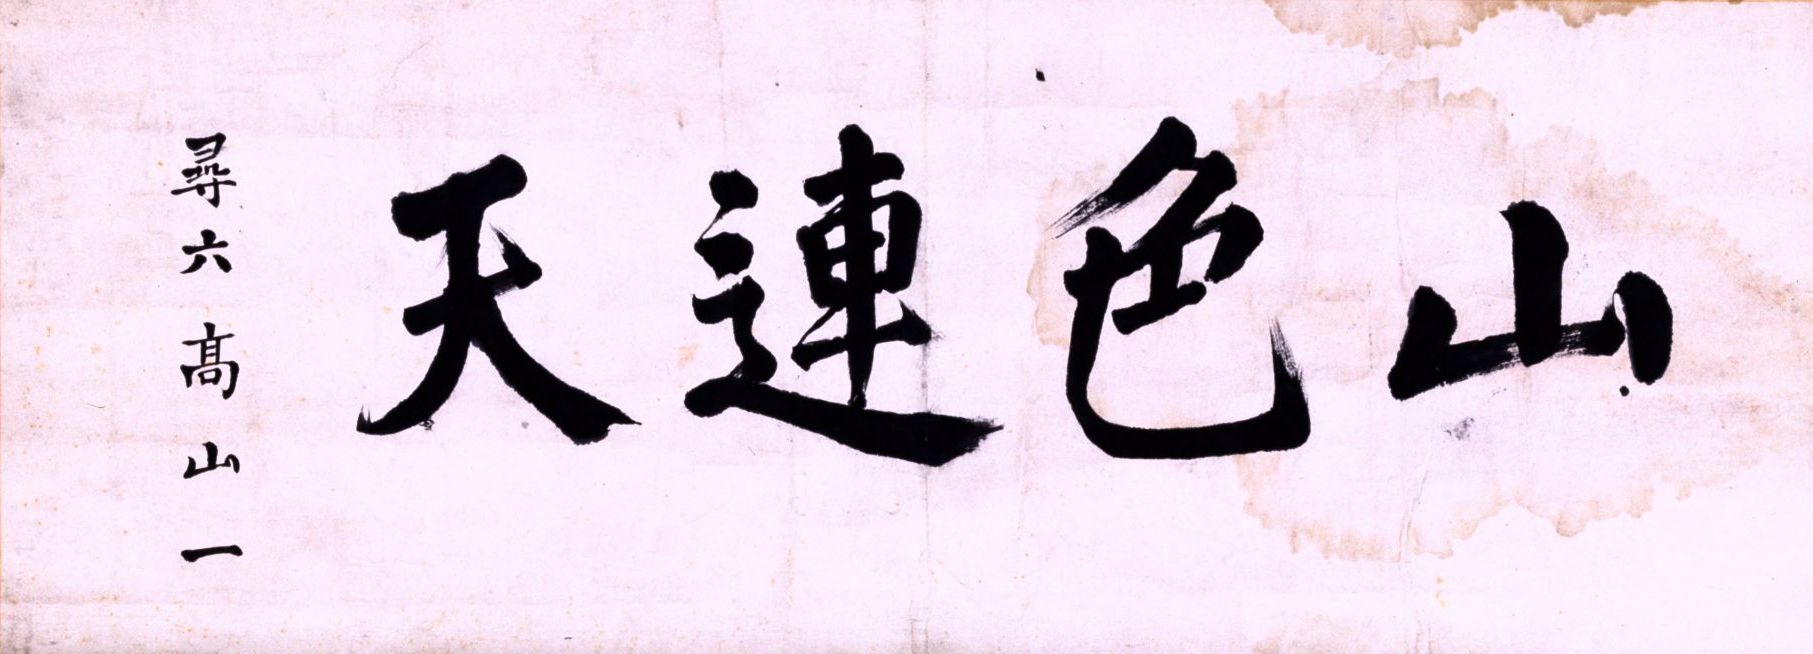 山色連天
尋六高山一